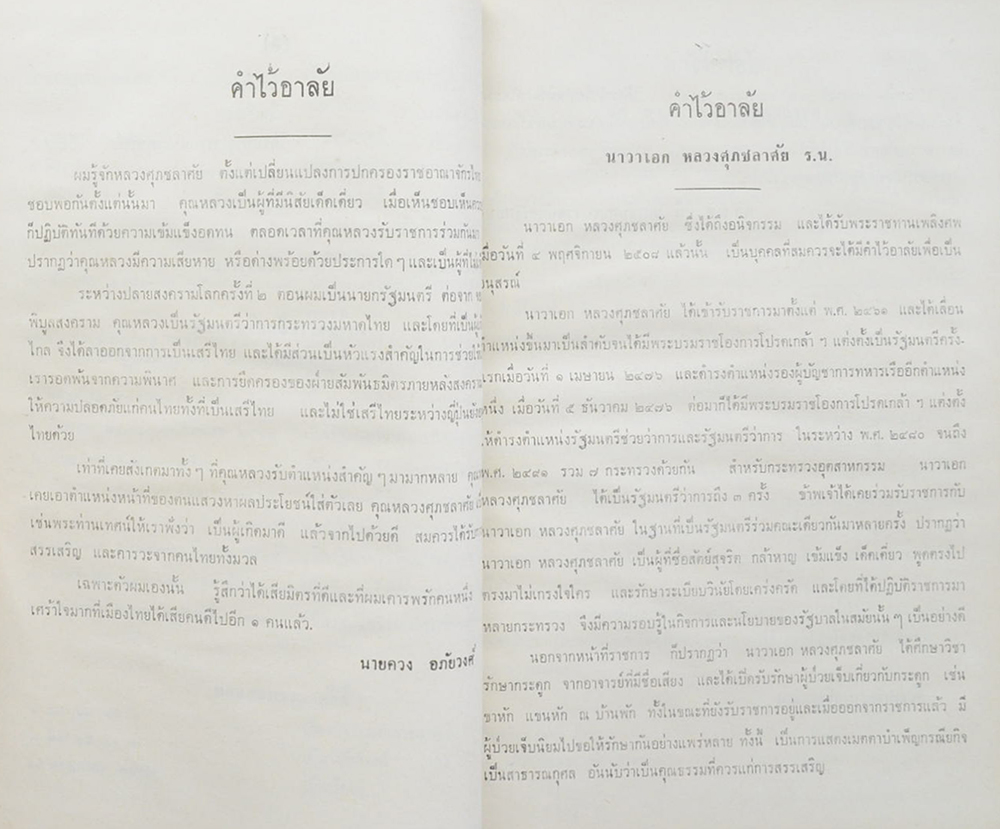 คำไว้อาลัย
ผมรู้จักหลวงศุภชลาศัย ตั้งแต่เปลี่ยนแปลงการปกครองราชอาณาจักรไทย
ชอบพอกันตั้งแต่นั้นมา คุณหลวงเป็นผู้ที่มีนิสัยเด็ดเดี่ยว เมื่อเห็นชอบเห็น
ก็ปฏิบัติทันทีด้วยความเข้มแข็งอดทน ตลอดเวลาที่คุณหลวงรับราชการร่วมกันมา
ปรากฏว่าคุณหลวงมีความเสียหาย หรือด่างพร้อยด้วยประการใด ๆ และเป็นผู้ที่
ระหว่างปลายสงครามโลกครั้งที่ ๒ ตอนผมเป็นนายกรัฐมนตรี ต่อจาก
พิบูลสงคราม คุณหลวงเป็นรัฐมนตรีว่าการกระทรวงมหาดไทย และโดยที่เป็น
ไกล จึงได้ลาออกจากการเป็นเสรีไทย และได้มีส่วนเป็นหัวแรงสำคัญในการช่วย
เรารอดพ้นจากความพินาศ และการยึดครองของฝ่ายสัมพันธมิตรภายหลังสงคราม
ให้ความปลอดภัยแก่คนไทยทั้งที่เป็นเสรีไทย และไม่ใช่เสรีไทยระหว่างญี่ปุ่นยัง
ไทยด้วย
เท่าที่เคยสังเกตมาทั้ง ๆ ที่คุณหลวงรับตำแหน่งสำคัญ ๆ มามากหลาย
เคยเอาตำแหน่งหน้าที่ของตนแสวงหาผลประโยชน์ใส่ตัวเลย คุณหลวงศุภชลาศัย
เช่นพระท่านเทศน์ให้เราฟังว่า เป็นผู้เกิดมาดี แล้วจากไปด้วยดี สมควรได้รับ
สรรเสริญ และคารวะจากคนไทยทั้งมวล
เฉพาะตัวผมเองนั้น รู้สึกว่าได้เสียมิตรที่ดีและที่ผมเคารพรักคนหนึ่ง
เศร้าใจมากที่เมืองไทยได้เสียคนดีไปอีก ๑ คนแล้ว.
นายควง อภัยวงศ์
คำไว้อาลัย
นาวาเอก หลวงศุภชลาศัย ร.น.
นาวาเอก หลวงศุภชลาศัย ซึ่งได้ถึงอนิจกรรม และได้รับพระราชทานเพลิงศพ
เมื่อวันที่ ๔ พฤศจิกายน ๒๕๐๘ แล้วนั้น เป็นบุคคลที่สมควรจะได้มีคำไว้อาลัยเพื่อเป็น
อนุสรณ์
นาวาเอก หลวงศุภชลาศัย ได้เข้ารับราชการมาตั้งแต่ พ.ศ. ๒๔๖๑ และได้เลื่อน
ตำแหน่งขึ้นมาเป็นลำดับจนได้มีพระบรมราชโองการโปรดเกล้า ๆ แต่งตั้งเป็นรัฐมนตรีครั้ง-
แรกเมื่อวันที่ ๑ เมษายน ๒๔๗๖ และดำรงตำแหน่งรองผู้บัญชาการทหารเรืออีกตำแหน่ง
หนึ่ง เมื่อวันที่ ๕ ธันวาคม ๒๔๗๖ ต่อมาก็ได้มีพระบรมราชโองการโปรดเกล้า ๆ แต่งตั้ง
ให้ดำรงตำแหน่งรัฐมนตรีช่วยว่าการและรัฐมนตรีว่าการ ในระหว่าง พ.ศ. ๒๔๘๐ จนถึง
พ.ศ. ๒๔๙๑ รวม ๗ กระทรวงด้วยกัน สำหรับกระทรวงอุตสาหกรรม นาวาเอก
หลวงศุภชลาศัย ได้เป็นรัฐมนตรีว่าการถึง ๓ ครั้ง ข้าพเจ้าได้เคยร่วมรับราชการกับ
นาวาเอก หลวงศุภชลาศัย ในฐานที่เป็นรัฐมนตรีร่วมคณะเดียวกันมาหลายครั้ง ปรากฏว่า
นาวาเอก หลวงศุภชลาศัย เป็นผู้ที่ซื่อสัตย์สุจริต กล้าหาญ เข้มแข็ง เด็ดเดี่ยว พูดตรงไป
ตรงมาไม่เกรงใจใคร และรักษาระเบียบวินัยโดยเคร่งครัด และโดยที่ได้ปฏิบัติราชการมา
หลายกระทรวง จึงมีความรอบรู้ในกิจการและนโยบายของรัฐบาลในสมัยนั้น ๆ เป็นอย่างดี
นอกจากหน้าที่ราชการ ก็ปรากฏว่า นาวาเอก หลวงศุภชลาศัย ได้ศึกษาวิชา
รักษากระดูก จากอาจารย์ที่มีชื่อเสียง และได้เปิดรับรักษาผู้ป่วยเจ็บเกี่ยวกับกระดูก เช่น
ขาหัก แขนหัก ณ บ้านพัก ทั้งในขณะที่ยังรับราชการอยู่และเมื่อออกจากราชการแล้ว มี
ผู้ป่วยเจ็บนิยมไปขอให้รักษากันอย่างแพร่หลาย ทั้งนี้ เป็นการแสดงเมตตาบำเพ็ญกรณียกิจ
เป็นสาธารณกุศล อันนับว่าเป็นคุณธรรมที่ควรแก่การสรรเสริญ